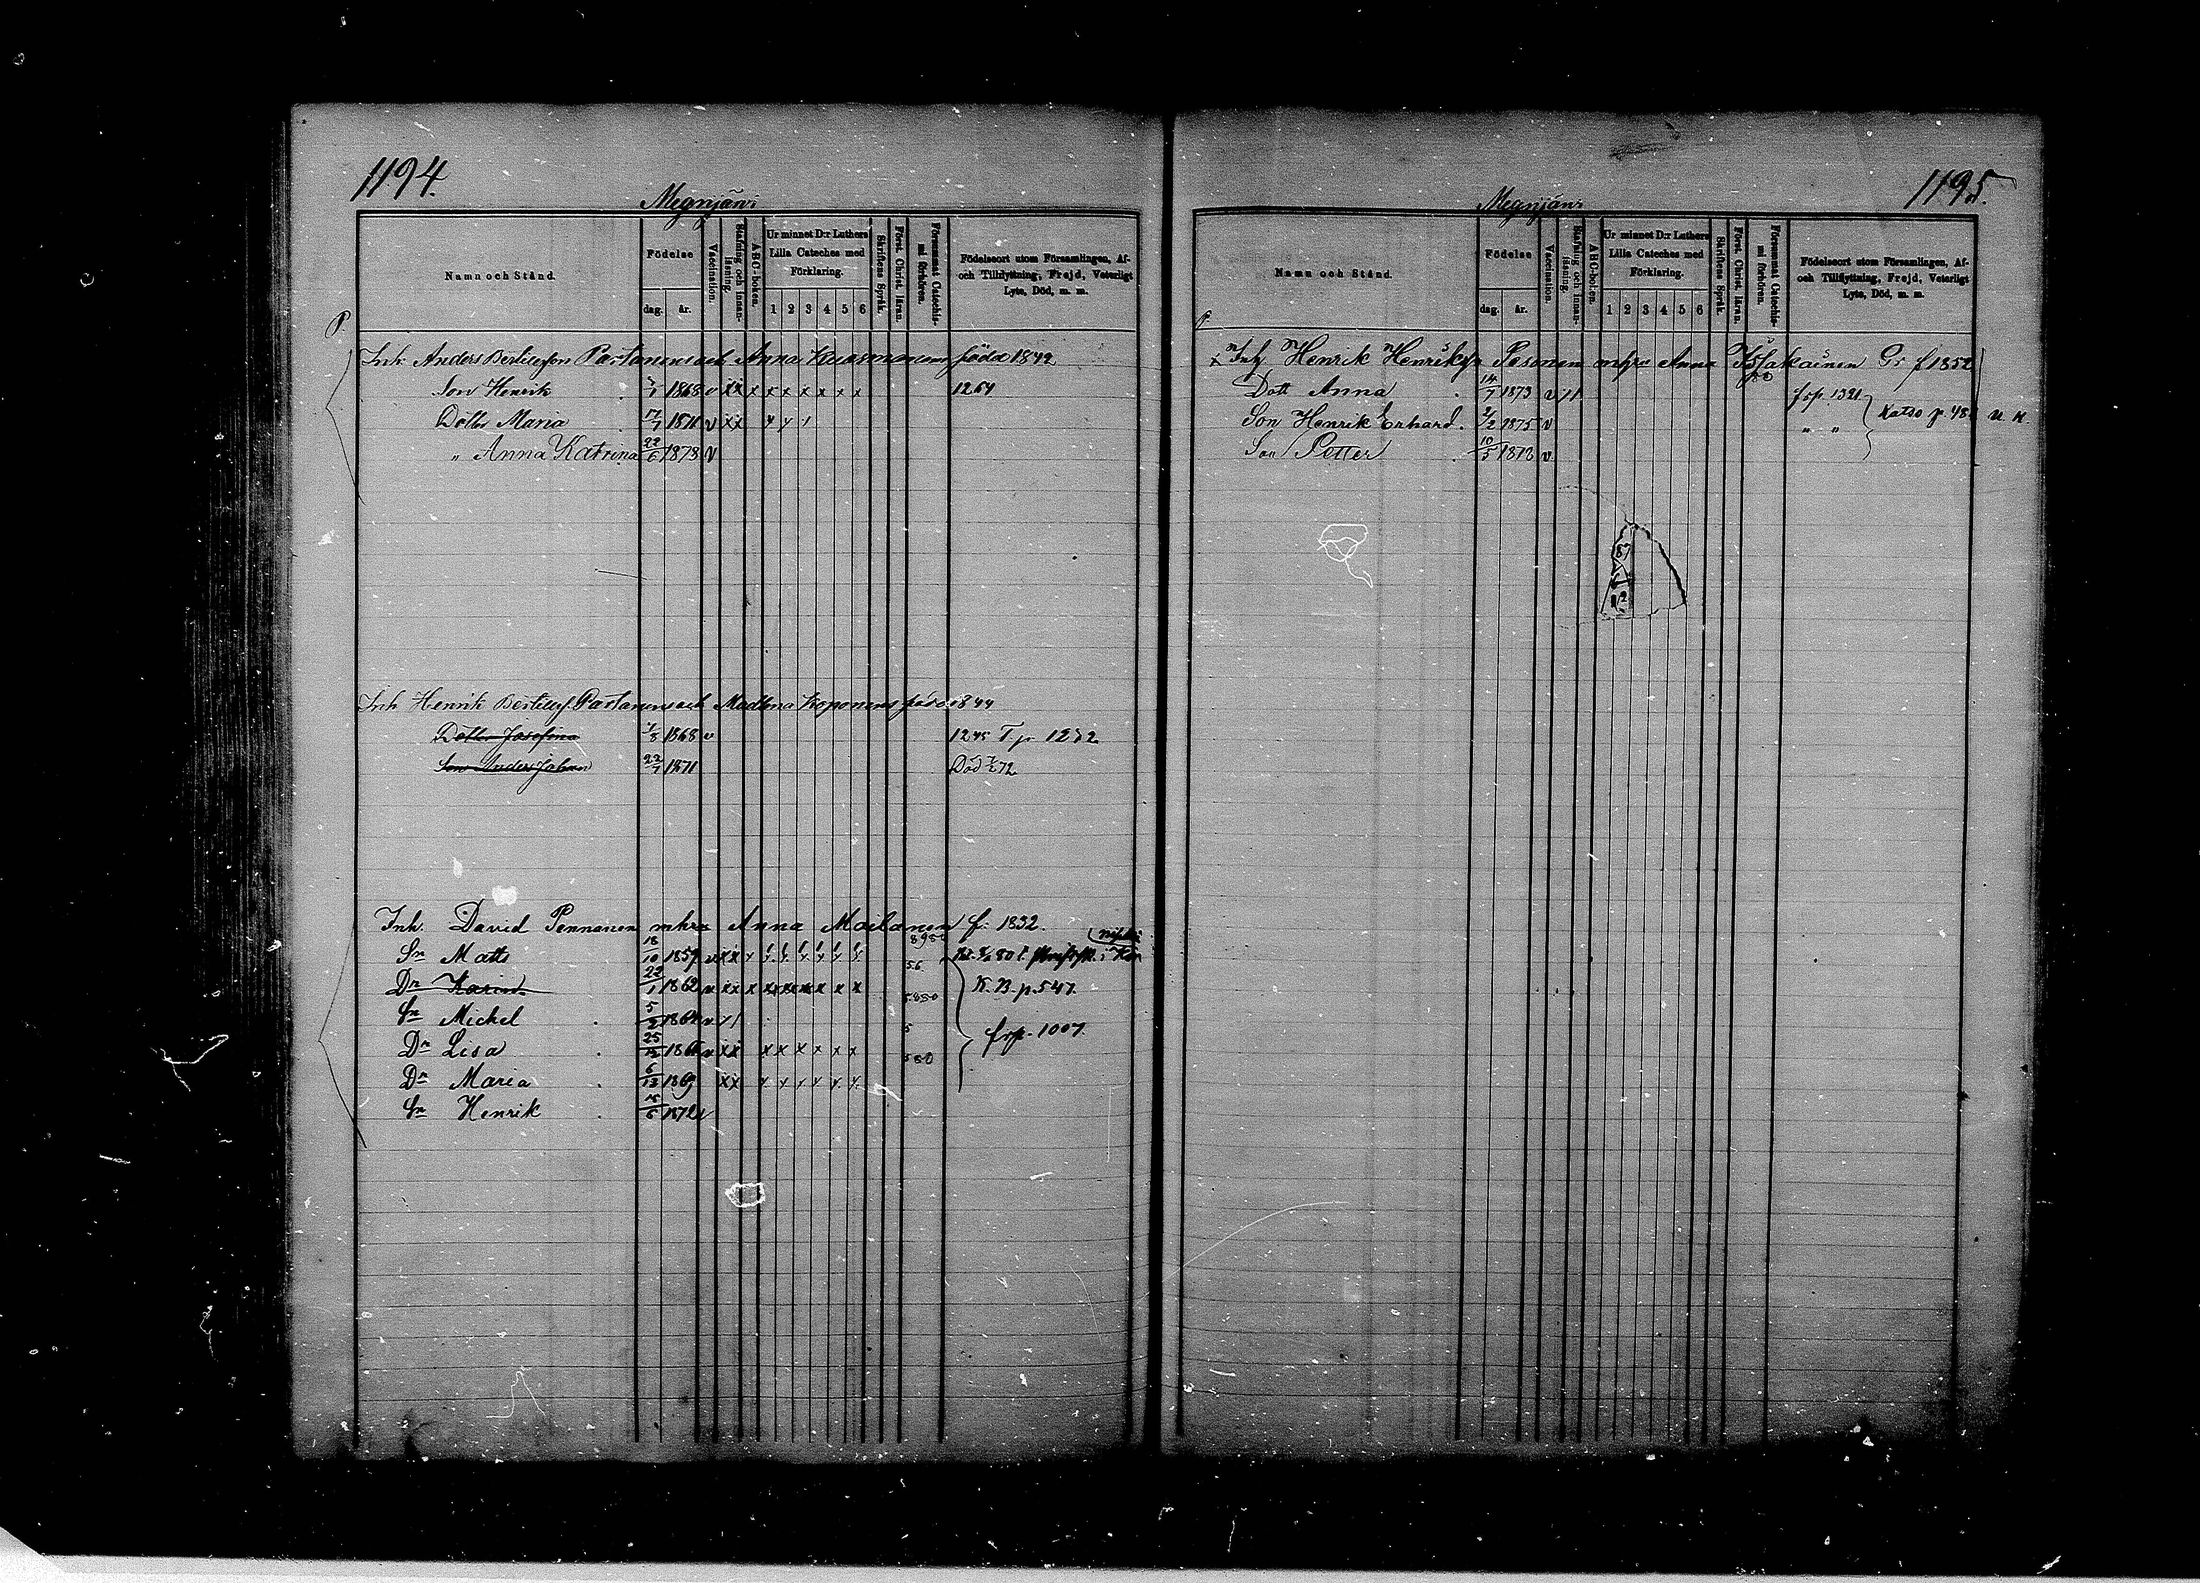 1194.
Megnjäni
Namn och Stånd.
Födelse
dag. år.
Vaccination.
Stafning och innanläsning.
ABC-boken.
Ur minnet D:r Luthers Lilla Cateches med Förklaring.
1 2 3 4 5 6
Skriftens Språk.
Först. Christ. läran.
Försummat Catechismi förhören.
Födelseort utom Församlingen, Af- och Tillflyttning, Frejd, Veterligt Lyte, Död, m. m.
P.
Inh. Anders Bertillsson Partanens och Anna född 1842
Son Henrik 1868 v xx x x x x x x x 1264
Dotter Maria 17/1 1871 v xx
" Anna Katrina 22/6 1878 v
Inh Henrik Bertillss. Partanens och Madlena Koponens född 1844
Dotter Josefina 1868 v 1245 T p 1272
Son Anders Johan 22/7 1871 Död 72
Inh. David Pennanen mhra Anna Mailanen f. 1832.
Sn Matts 18/10 1859 v xx
Dr Karin 22/1 1862 v xx x x x x x x x K. B. p. 547.
Sn Michel 5/2 1864 v //
Dr Lisa 25/12 186 v xx x x x x x x frp. 1007.
Dr Maria 6/12 1869 xx
Sn Henrik 1872 v
1195.
Megnjäni
Namn och Stånd.
Födelse
dag. år.
Vaccination.
Stafning och innanläsning.
ABC-boken.
Ur minnet D:r Luthers Lilla Cateches med Förklaring.
1 2 3 4 5 6
Skriftens Språk.
Först. Christ. läran.
Försummat Catechismi förhören.
Födelseort utom Församlingen, Af- och Tillflyttning, Frejd, Veterligt Lyte, Död, m. m.
x Inh. Henrik Henriks Pesonen mhra Anna Issakainen f 1852
Dott Anna 14/7 1873 v // frp. 1321
Son Henrik Erhard. 2/2 1875 v " " Katso p. 48
Son Petter 10/5 1878 v